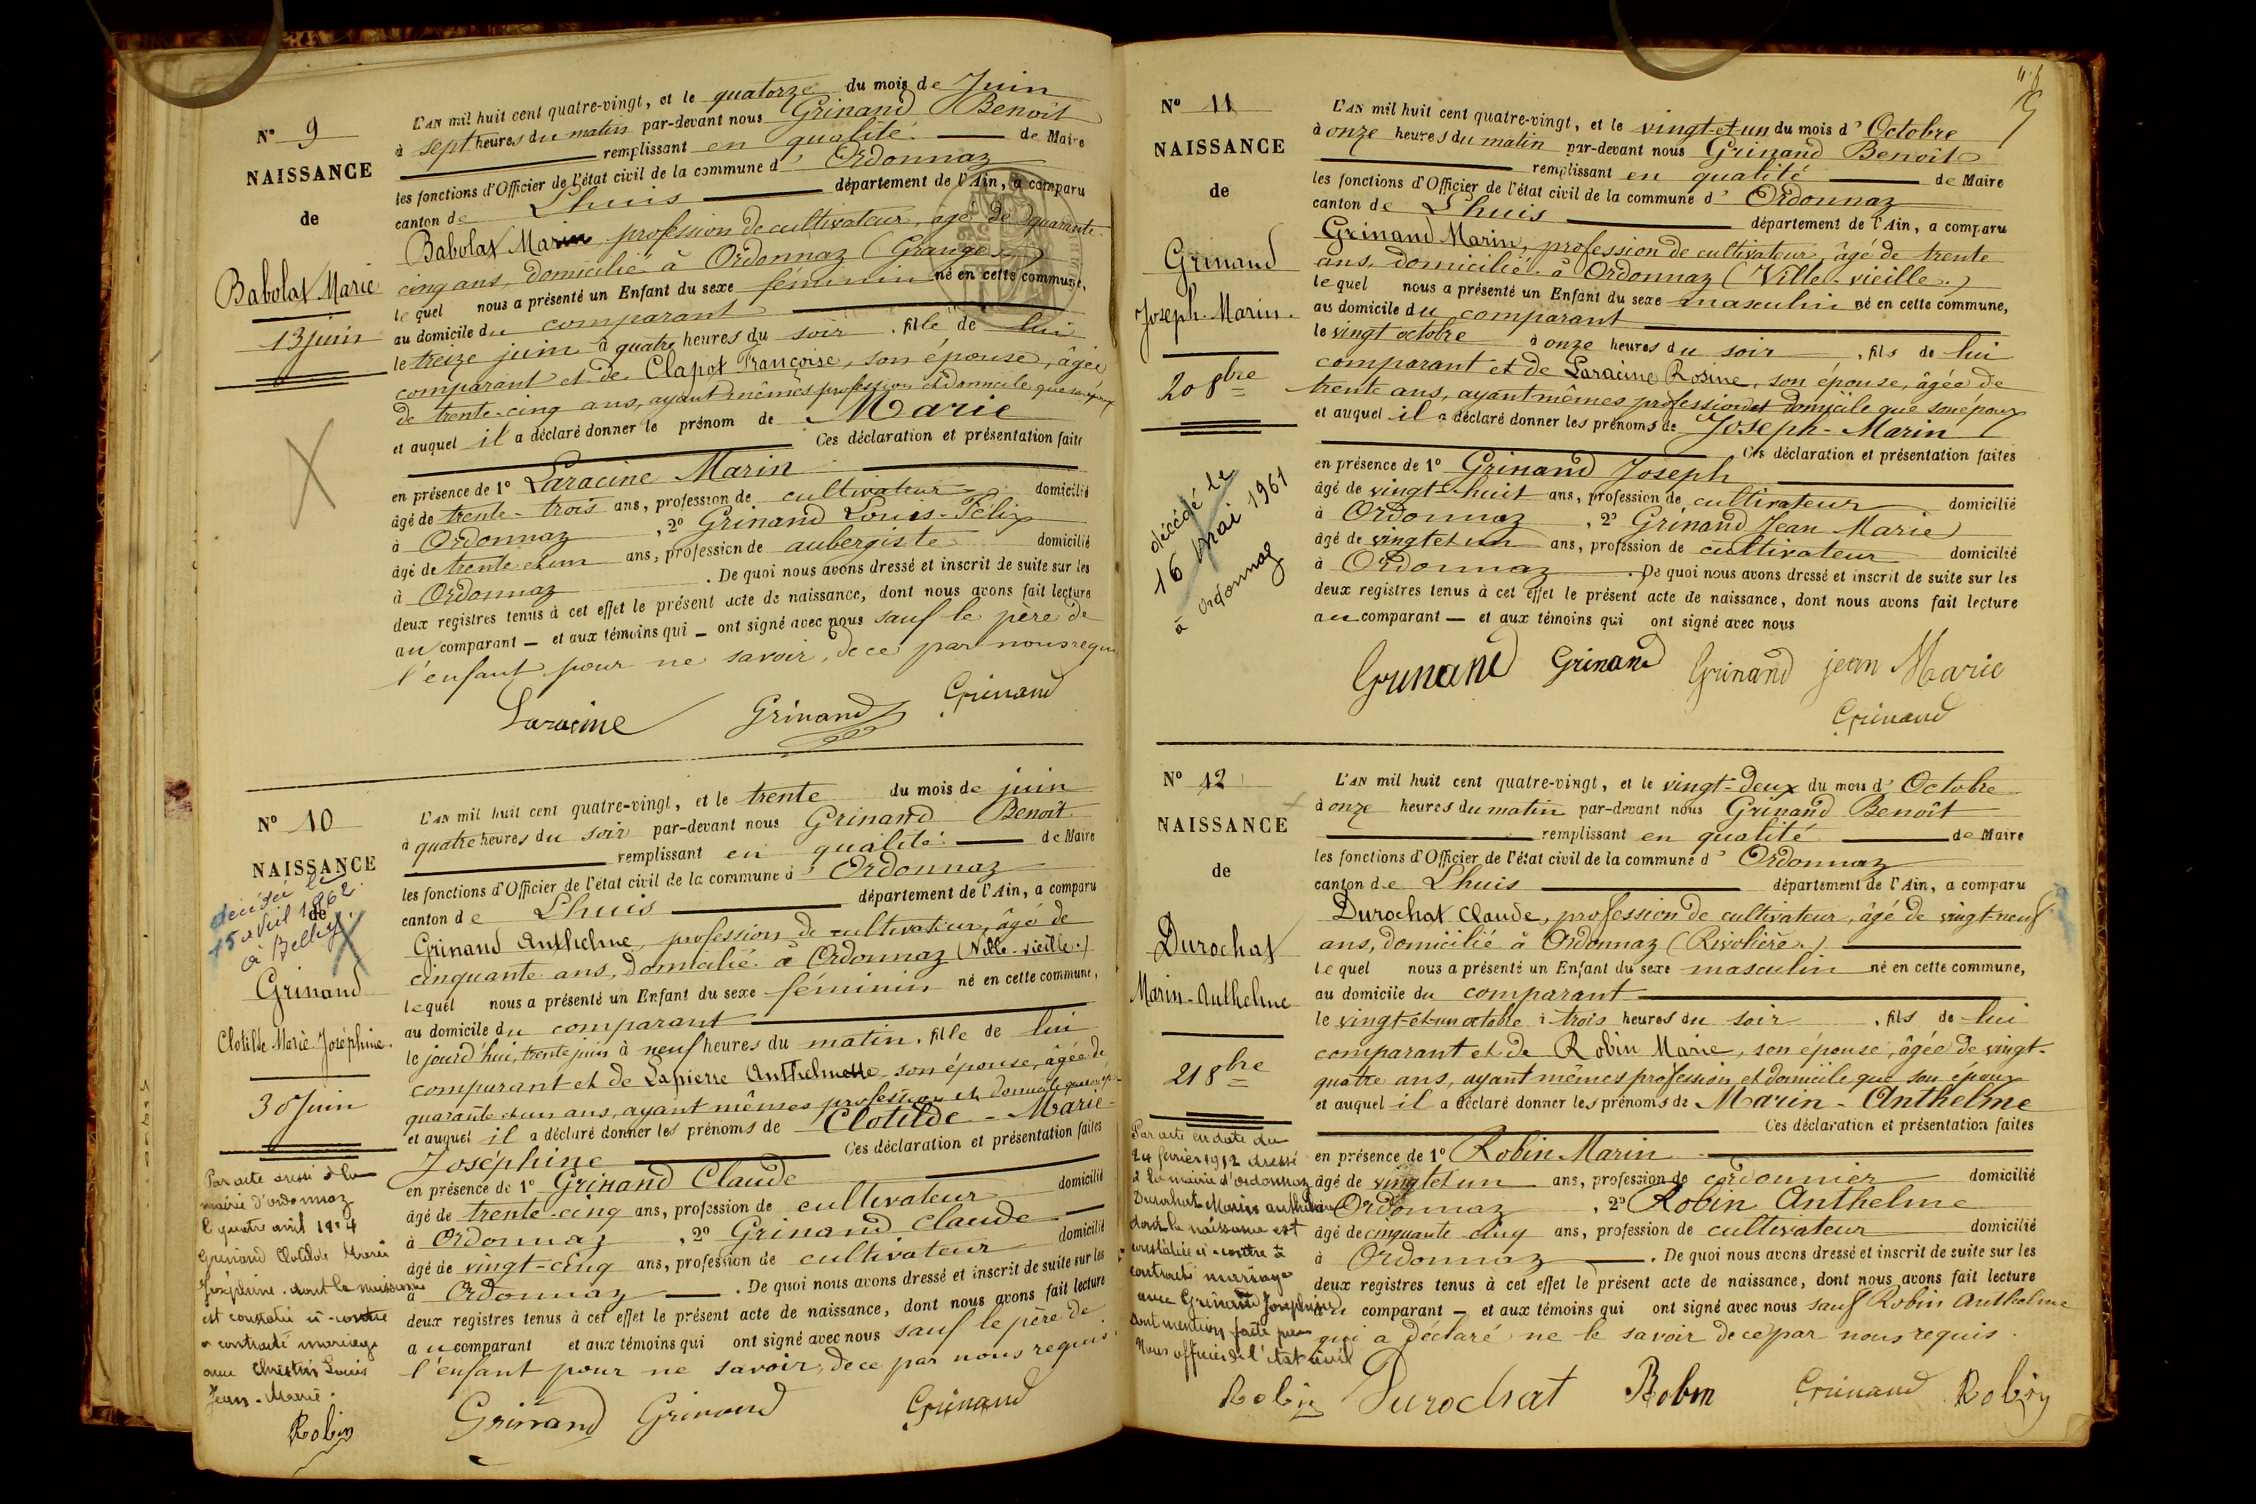 N° 9
NAISSANCE
de
Babolat Marie
13 juin
L'AN mil huit cent quatre-vingt, et le quatorze du mois de Juin
à sept heures du matin par-devant nous Grinand Benoit
remplissant en qualité de Maire
les fonctions d'Officier de l'état civil de la commune d' Ordonnaz
canton de Lhuis département de l'Ain, a comparu
Babolat Marin, profession de cultivateur, âgé de quarante-
cinq ans, domicilié à Ordonnaz (Granges)
lequel nous a présenté un Enfant du sexe féminin né en cette commune,
au domicile du comparant
le treize juin à quatre heures du soir, fille de lui
comparant et de Clapot Françoise, son épouse, âgée
de trente-cinq ans, ayant mêmes profession et domicile que son époux
et auquel il a déclaré donner le prénom de Marie
Ces déclaration et présentation faites
en présence de 1° Laracine Marin
âgé de trente-trois ans, profession de cultivateur domicilié
à Ordonnaz, 2° Grinand Louis-Félix
âgé de trente et un ans, profession de aubergiste domicilié
à Ordonnaz. De quoi nous avons dressé et inscrit de suite sur les
deux registres tenus à cet effet le présent acte de naissance, dont nous avons fait lecture
au comparant — et aux témoins qui — ont signé avec nous sauf le père de
l'enfant pour ne savoir, de ce par nous requis
Laracine Grinand Grinand
N° 10
NAISSANCE
de
décédée le
15 avril 1962
à Belley
Grinand
Clotilde Marie Joséphine
30 Juin
L'AN mil huit cent quatre-vingt, et le trente du mois de juin
à quatre heures du soir par-devant nous Grinand Benoit
remplissant en qualité de Maire
les fonctions d'Officier de l'état civil de la commune d' Ordonnaz
canton de Lhuis département de l'Ain, a comparu
Grinand Anthelme, profession de cultivateur, âgé de
cinquante ans, domicilié à Ordonnaz (Ville-vieille.)
lequel nous a présenté un Enfant du sexe féminin né en cette commune,
au domicile du comparant
le jourd'hui, trente juin à neuf heures du matin, fille de lui
comparant et de Lapierre Anthelmette son épouse, âgée de
quarante et un ans, ayant mêmes profession et domicile que son époux
et auquel il a déclaré donner les prénoms de Clotilde-Marie-
Joséphine Ces déclaration et présentation faites
en présence de 1° Grinand Claude
âgé de trente-cinq ans, profession de cultivateur domicilié
à Ordonnaz, 2° Grinand Claude
âgé de vingt-cinq ans, profession de cultivateur domicilié
à Ordonnaz. De quoi nous avons dressé et inscrit de suite sur les
deux registres tenus à cet effet le présent acte de naissance, dont nous avons fait lecture
au comparant et aux témoins qui ont signé avec nous sauf le père de
l'enfant pour ne savoir, de ce par nous requis.
Par acte dressé à la
mairie d'ordonnaz
le quatre avril
Grinand Clotilde Marie
Joséphine, dont la naissance
est constatée ci-contre
a contracté mariage
avec Louis
Jean-Marie.
Robin
Grinand Grinand Grinand
N° 11
NAISSANCE
de
Grinand
Joseph-Marin.
20 8bre
décédé le
16 Mai 1961
à Ordonnaz
L'AN mil huit cent quatre-vingt, et le vingt-et-un du mois d' Octobre
à onze heures du matin par-devant nous Grinand Benoît
remplissant en qualité de Maire
les fonctions d'Officier de l'état civil de la commune d' Ordonnaz
canton de Lhuis département de l'Ain, a comparu
Grinand Marin, profession de cultivateur, âgé de trente
ans, domicilié à Ordonnaz (Ville-vieille.)
lequel nous a présenté un Enfant du sexe masculin né en cette commune,
au domicile du comparant
le vingt octobre à onze heures du soir, fils de lui
comparant et de Laracine Rosine, son épouse, âgée de
trente ans, ayant mêmes profession et domicile que son époux
et auquel il a déclaré donner les prénoms de Joseph-Marin
Ces déclaration et présentation faites
en présence de 1° Grinand Joseph
âgé de vingt-huit ans, profession de cultivateur domicilié
à Ordonnaz, 2° Grinand Jean Marie
âgé de vingt et un ans, profession de cultivateur domicilié
à Ordonnaz. De quoi nous avons dressé et inscrit de suite sur les
deux registres tenus à cet effet le présent acte de naissance, dont nous avons fait lecture
au comparant — et aux témoins qui ont signé avec nous
Grinand Grinand Grinand jean Marie
Grinand
N° 12
NAISSANCE
de
Durochat
Marin-Anthelme
21 8bre
L'AN mil huit cent quatre-vingt, et le vingt-deux du mois d' Octobre
à onze heures du matin par-devant nous Grinand Benoît
remplissant en qualité de Maire
les fonctions d'Officier de l'état civil de la commune d' Ordonnaz
canton de Lhuis département de l'Ain, a comparu
Durochat Claude, profession de cultivateur, âgé de vingt-neuf
ans, domicilié à Ordonnaz (Rivolière.)
lequel nous a présenté un Enfant du sexe masculin né en cette commune,
au domicile du comparant
le vingt-et-un octobre à trois heures du soir, fils de lui
comparant et de Robin Marie, son épouse, âgée de vingt-
quatre ans, ayant mêmes profession et domicile que son époux
et auquel il a déclaré donner les prénoms de Marin-Anthelme
Ces déclaration et présentation faites
en présence de 1° Robin Marin
âgé de vingt et un ans, profession de cordonnier domicilié
à Ordonnaz, 2° Robin Anthelme
âgé de cinquante cinq ans, profession de cultivateur domicilié
à Ordonnaz. De quoi nous avons dressé et inscrit de suite sur les
deux registres tenus à cet effet le présent acte de naissance, dont nous avons fait lecture
au comparant — et aux témoins qui ont signé avec nous sauf Robin Anthelme
qui a déclaré ne le savoir de ce par nous requis.
Par acte en date du
24 février 1912 dressé
à la mairie d'ordonnaz
Durochat Marin anthelme
dont la naissance est
constatée ci-contre a
contracté mariage
avec Grinand Joséphine
dont mention faite par
Nous officier de l'état civil
Robin Durochat Robin Grinand Robin